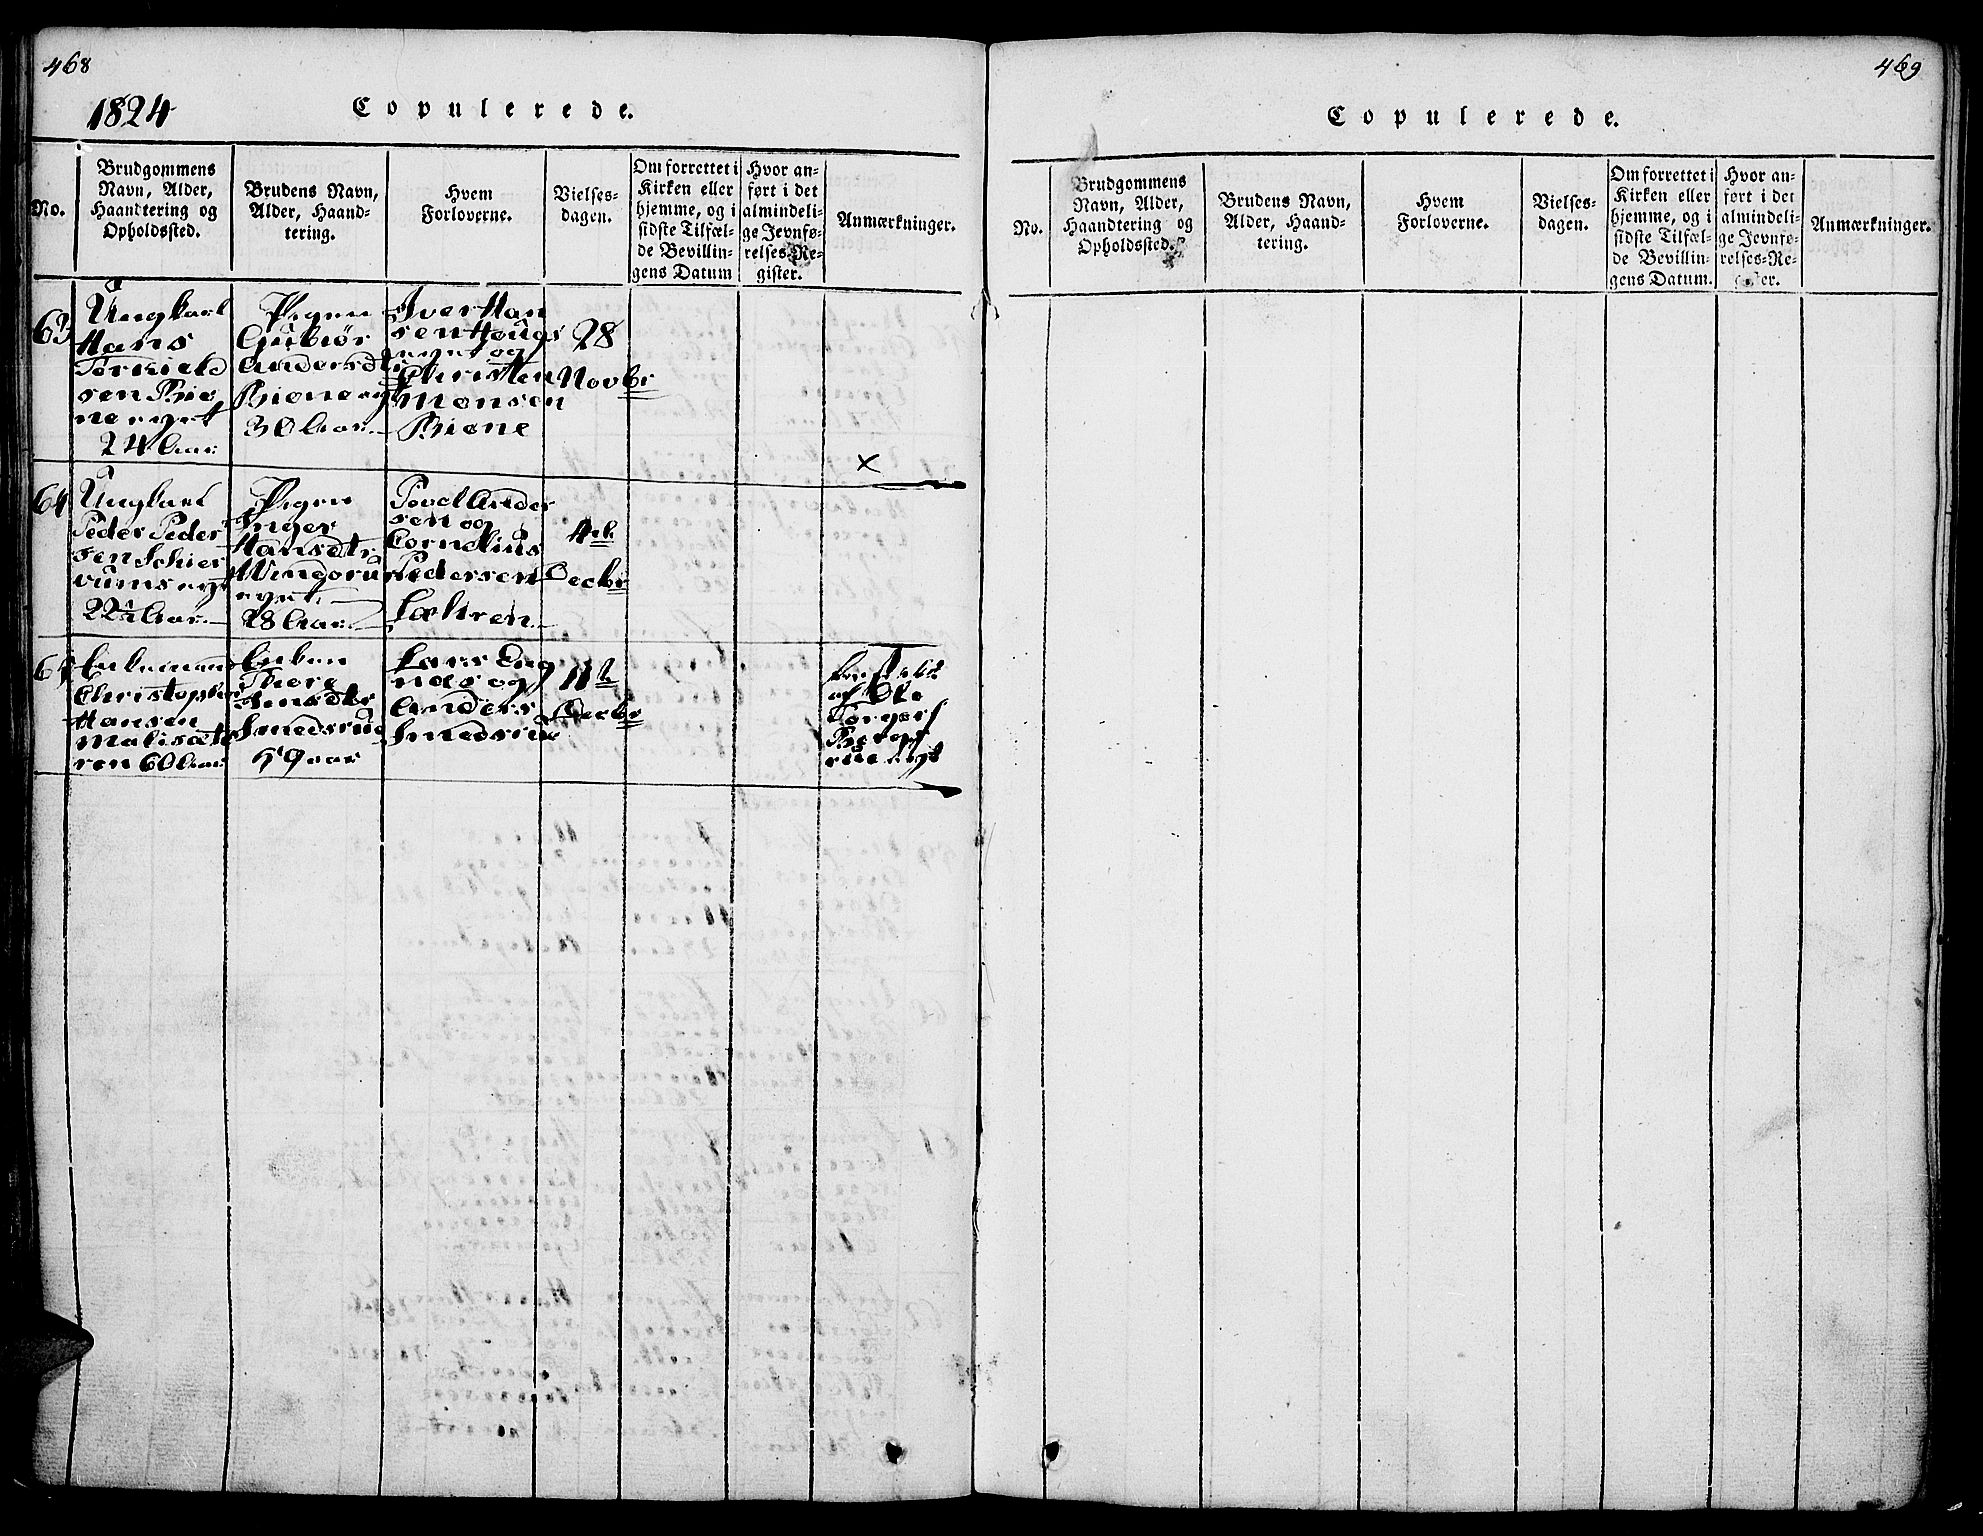 468
1824
Copulerede.
No.
Brudgommens
Navn, Alder,
Haandtering og
Opholdssted.
Brudens Navn,
Alder, Haand-
tering.
Hvem
Forloverne.
Vielses-
dagen.
Om forrettet i
Kirken eller
hjemme, og i
sidste Tilfæl-
de Bevillin-
gens Datum
Hvor an-
ført i det
almindeli-
ge Jevnfø-
relses-Re-
gister.
Anmærkninger.
63
Ungkarl
Hans
Torkield
sen Biø
neeyet
24 Aar
Pigen
Gubiør
Andersdtr
Biøneey
30 Aar
Iver Han
sen Hougs
eyet og
Christen
Monsen
Biøne
28
Novbr
x
64
Ungkarl
Peder Peder
sen Schier
vumseyt
22½ Aar
Pigen
Inger
Hansdtr
Windorum
eyet
28 Aar
Povel Ander
sen og
Cornelius
Pedersen
Læhren
4de
Decbr
65
Enkemand
Christopher
Hansen
Malisæte
ren 60 Aar
Enken
Thore
Jensdtr
Smedsrue
59 aar
Lars Dag
næs og
Anders
Smedsrue
11te
Decbr
af Ole
Torgers
Berge
rue eyt
469
Copulerede.
No.
Brudgommens
Navn, Alder,
Haandtering og
Opholdssted.
Brudens Navn,
Alder, Haand-
tering.
Hvem
Forloverne.
Vielses-
dagen.
Om forrettet i
Kirken eller
hjemme, og i
sidste Tilfæl-
de Bevillin-
gens Datum.
Hvor an-
ført i det
almindeli-
ge Jevnfø-
relses-Re-
gister.
Anmærkninger.